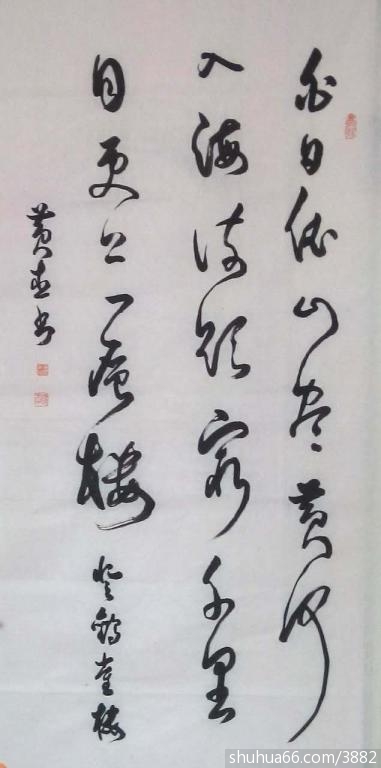 白日依山尽黄河
入海流欲穷千里
目更上一层楼 登鹳雀楼
黄 书
shuhua66.com/3882